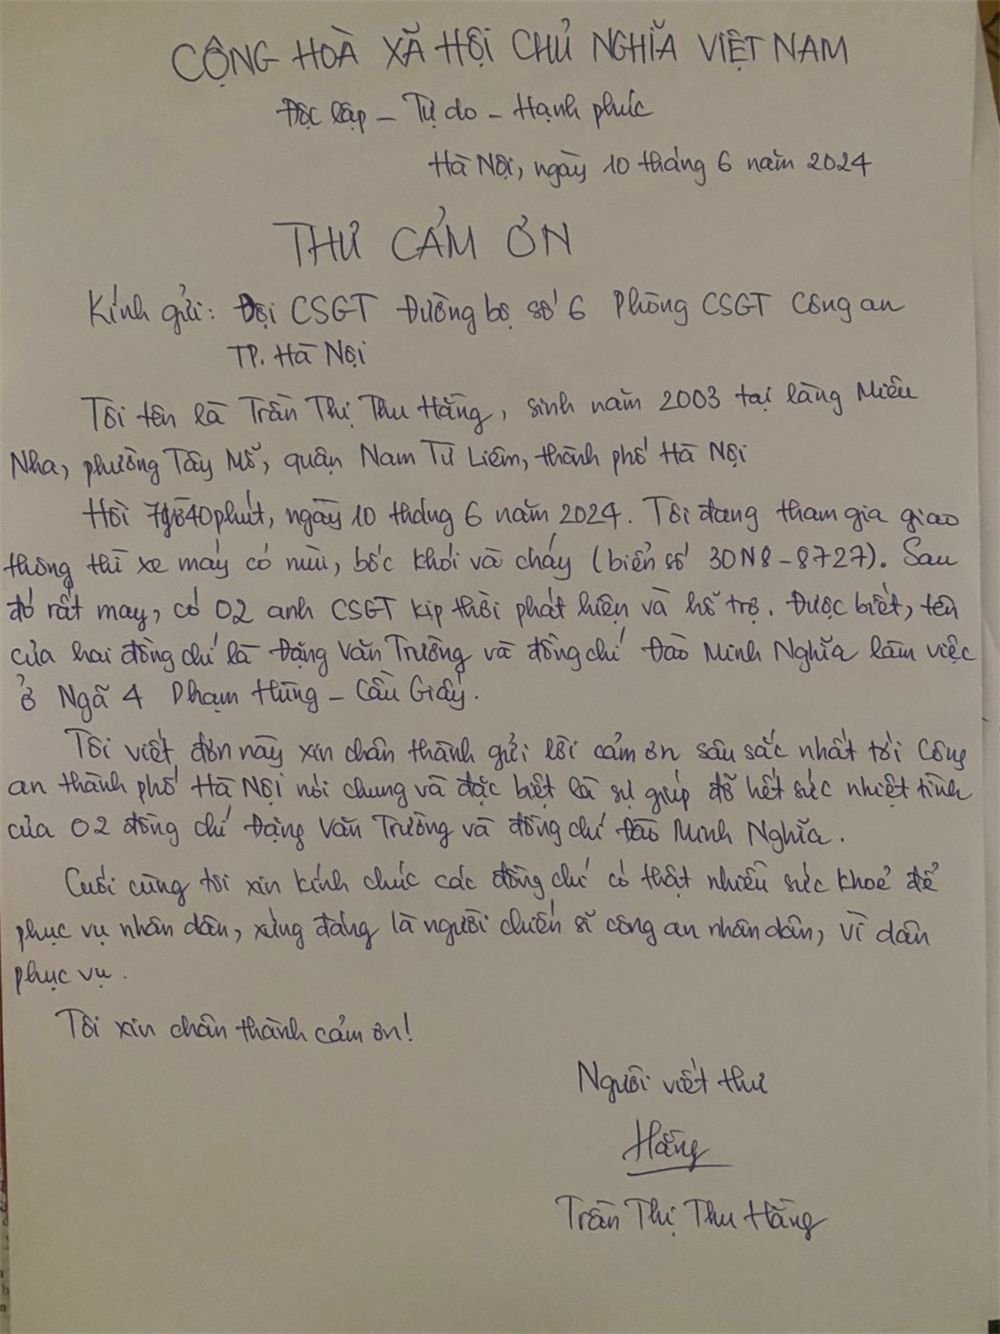 CỘNG HOÀ XÃ HỘI CHỦ NGHĨA VIỆT NAM
Độc lập - Tự do - Hạnh phúc
Hà Nội, ngày 10 tháng 6 năm 2024
THƯ CẢM ƠN
Kính gửi: Đội CSGT Đường bộ số 6 Phòng CSGT Công an
TP. Hà Nội
Tôi tên là Trần Thị Thu Hằng, sinh năm 2003 tại làng Miêu
Nha, phường Tây Mỗ, quận Nam Từ Liêm, thành phố Hà Nội
Hồi 40phút, ngày 10 tháng 6 năm 2024. Tôi đang tham gia giao
thông thì xe máy có mùi, bốc khói và cháy (biển số 30N8-8727). Sau
đó rất may, có 02 anh CSGT kịp thời phát hiện và hỗ trợ. Được biết, tên
của hai đồng chí là Đặng Văn Trường và đồng chí Đào Minh Nghĩa làm việc
ở Ngã 4 Phạm Hùng - Cầu Giấy.
Tôi viết đơn này xin chân thành gửi lời cảm ơn sâu sắc nhất tới Công
an thành phố Hà Nội nói chung và đặc biệt là sự giúp đỡ hết sức nhiệt tình
của 02 đồng chí Đặng Văn Trường và đồng chí Đào Minh Nghĩa.
Cuối cùng tôi xin kính chúc các đồng chí có thật nhiều sức khoẻ để
phục vụ nhân dân, xứng đáng là người chiến sĩ công an nhân dân, vì dân
phục vụ.
Tôi xin chân thành cảm ơn!
Người viết thư
Hằng
Trần Thị Thu Hằng